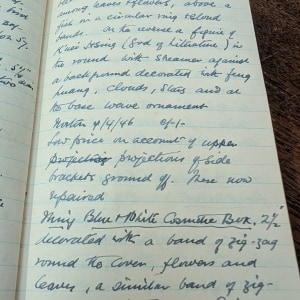 among leaves & flowers, above a
fish in a circular ring round
bands. On the reverse a figure of
K'uei Hsing (God of Literature) in
the round with streamer against
a background decorated with feng
huang, clouds, stars and at
the base wave ornament
4/4/46
Low price on account of upper
projecting projections of side
brackets ground off. These now
repaired
Ming Blue & White Cosmetic Box, 2½"
decorated with a band of zig-zag
round the cover, flowers and
leaves, a similar band of zig-